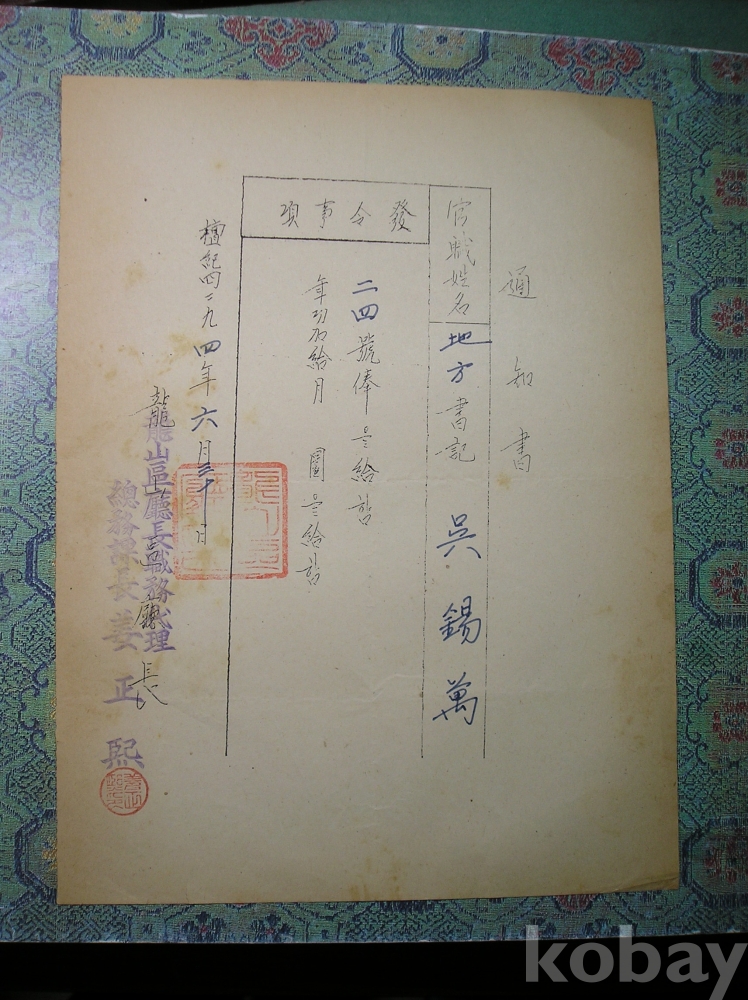 通知書
官職姓名
地方書記 吳錫萬
發令事項
二四號俸을給함
年功加給月 圜을給함
檀紀四二九四年六月三十日
龍山區廳長
龍山區廳長職務代理
總務課長姜正熙
kobay